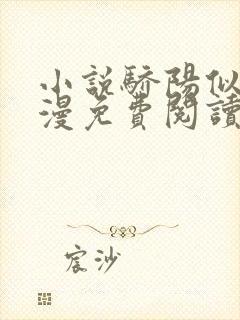 小說驕陽似
漫免費閱讀
宸沙